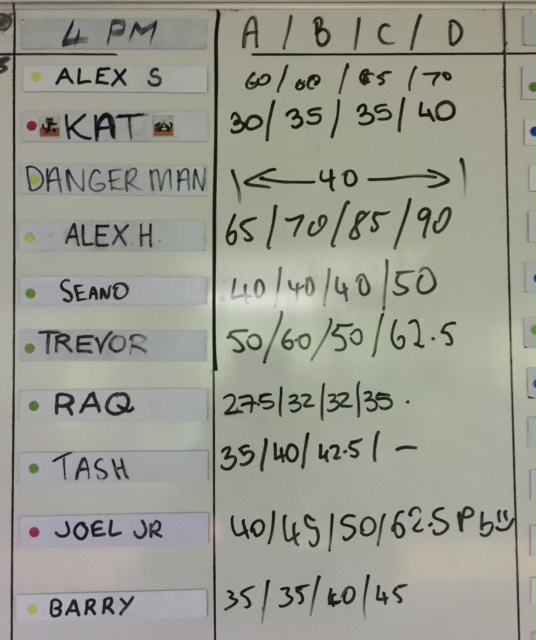 4 PM A / B / C / D
ALEX S 60/60/65/70
KAT 30/35/35/40
DANGERMAN |← 40 →|
ALEX H. 65/70/85/90
SEANO 40/40/40/50
TREVOR 50/60/50/62.5
RAQ 275/32/32/35.
TASH 35/40/42.5/-
JOEL JR 40/45/50/62.5 Pb
BARRY 35/35/40/45